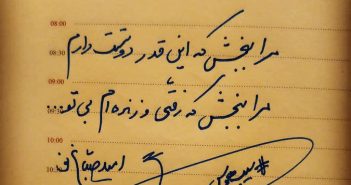 08:00
مرا ببخش که این قدر دوستت دارم
08:30
09:00
مرا ببخش که رفتی و زنده ام بی تو...
09:30
10:00
امید صباغ نو
10:30